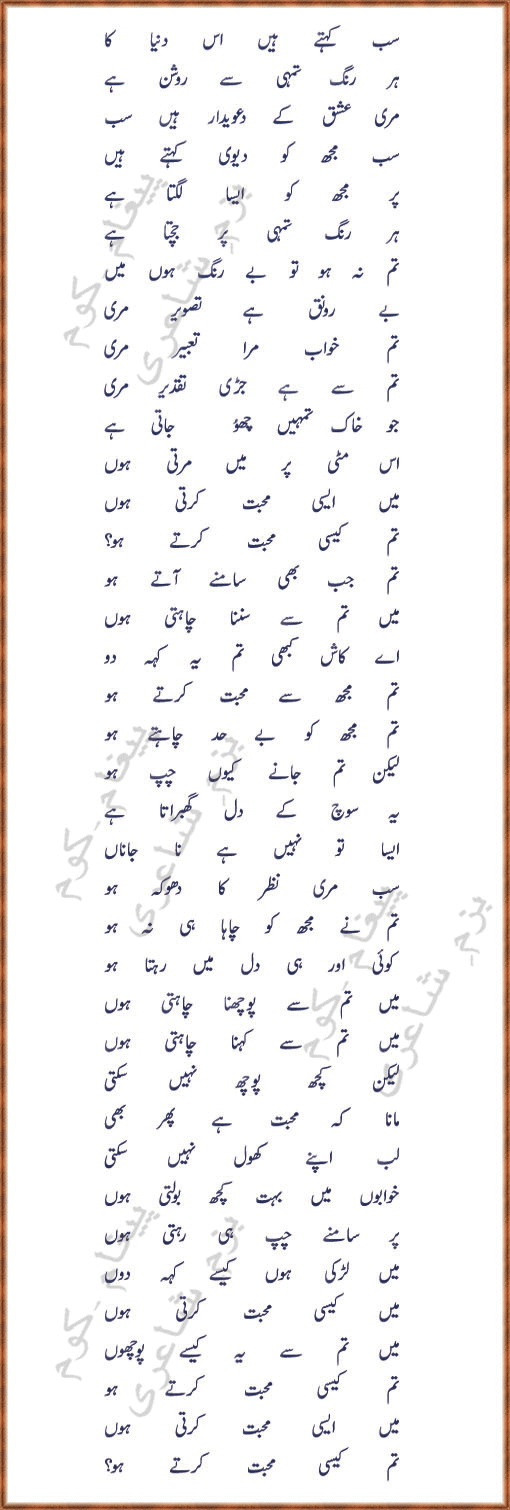 سب کہتے ہیں اس دنیا کا
ہر رنگ تمہی سے روشن ہے
مری عشق کے دعویدار ہیں سب
سب مجھ کو دیوی کہتے ہیں
پر مجھ کو ایسا لگتا ہے
ہر رنگ تمہی پر جچتا ہے
تم نہ ہو تو بے رنگ ہوں میں
بے رونق ہے تصویر مری
تم خواب مرا تعبیر مری
تم سے ہے جڑی تقدیر مری
جو خاک تمہیں چھوؤ جاتی ہے
اس مٹی پر میں مرتی ہوں
میں ایسی محبت کرتی ہوں
تم کیسی محبت کرتے ہو؟
تم جب بھی سامنے آتے ہو
میں تم سے سننا چاہتی ہوں
اے کاش کبھی تم یہ کہہ دو
تم مجھ سے محبت کرتے ہو
تم مجھ کو بے حد چاہتے ہو
لیکن تم جانے کیوں چپ ہو
یہ سوچ کے دل گھبراتا ہے
ایسا تو نہیں ہے نا جاناں
سب مری نظر کا دھوکہ ہو
تم نے مجھ کو چاہا ہی نہ ہو
کوئی اور ہی دل میں رہتا ہو
میں تم سے پوچھنا چاہتی ہوں
میں تم سے کہنا چاہتی ہوں
لیکن کچھ پوچھ نہیں سکتی
مانا کہ محبت ہے پھر بھی
لب اپنے کھول نہیں سکتی
خوابوں میں بہت کچھ بولتی ہوں
پر سامنے چپ ہی رہتی ہوں
میں لڑکی ہوں کیسے کہہ دوں
میں کیسی محبت کرتی ہوں
میں تم سے یہ کیسے پوچھوں
تم کیسی محبت کرتے ہو
میں ایسی محبت کرتی ہوں
تم کیسی محبت کرتے ہو؟
بزم۔شاعری
پیغام۔کوم
بزم۔شاعری
پیغام۔کوم
بزم۔شاعری
پیغام۔کوم
بزم۔شاعری
پیغام۔کوم